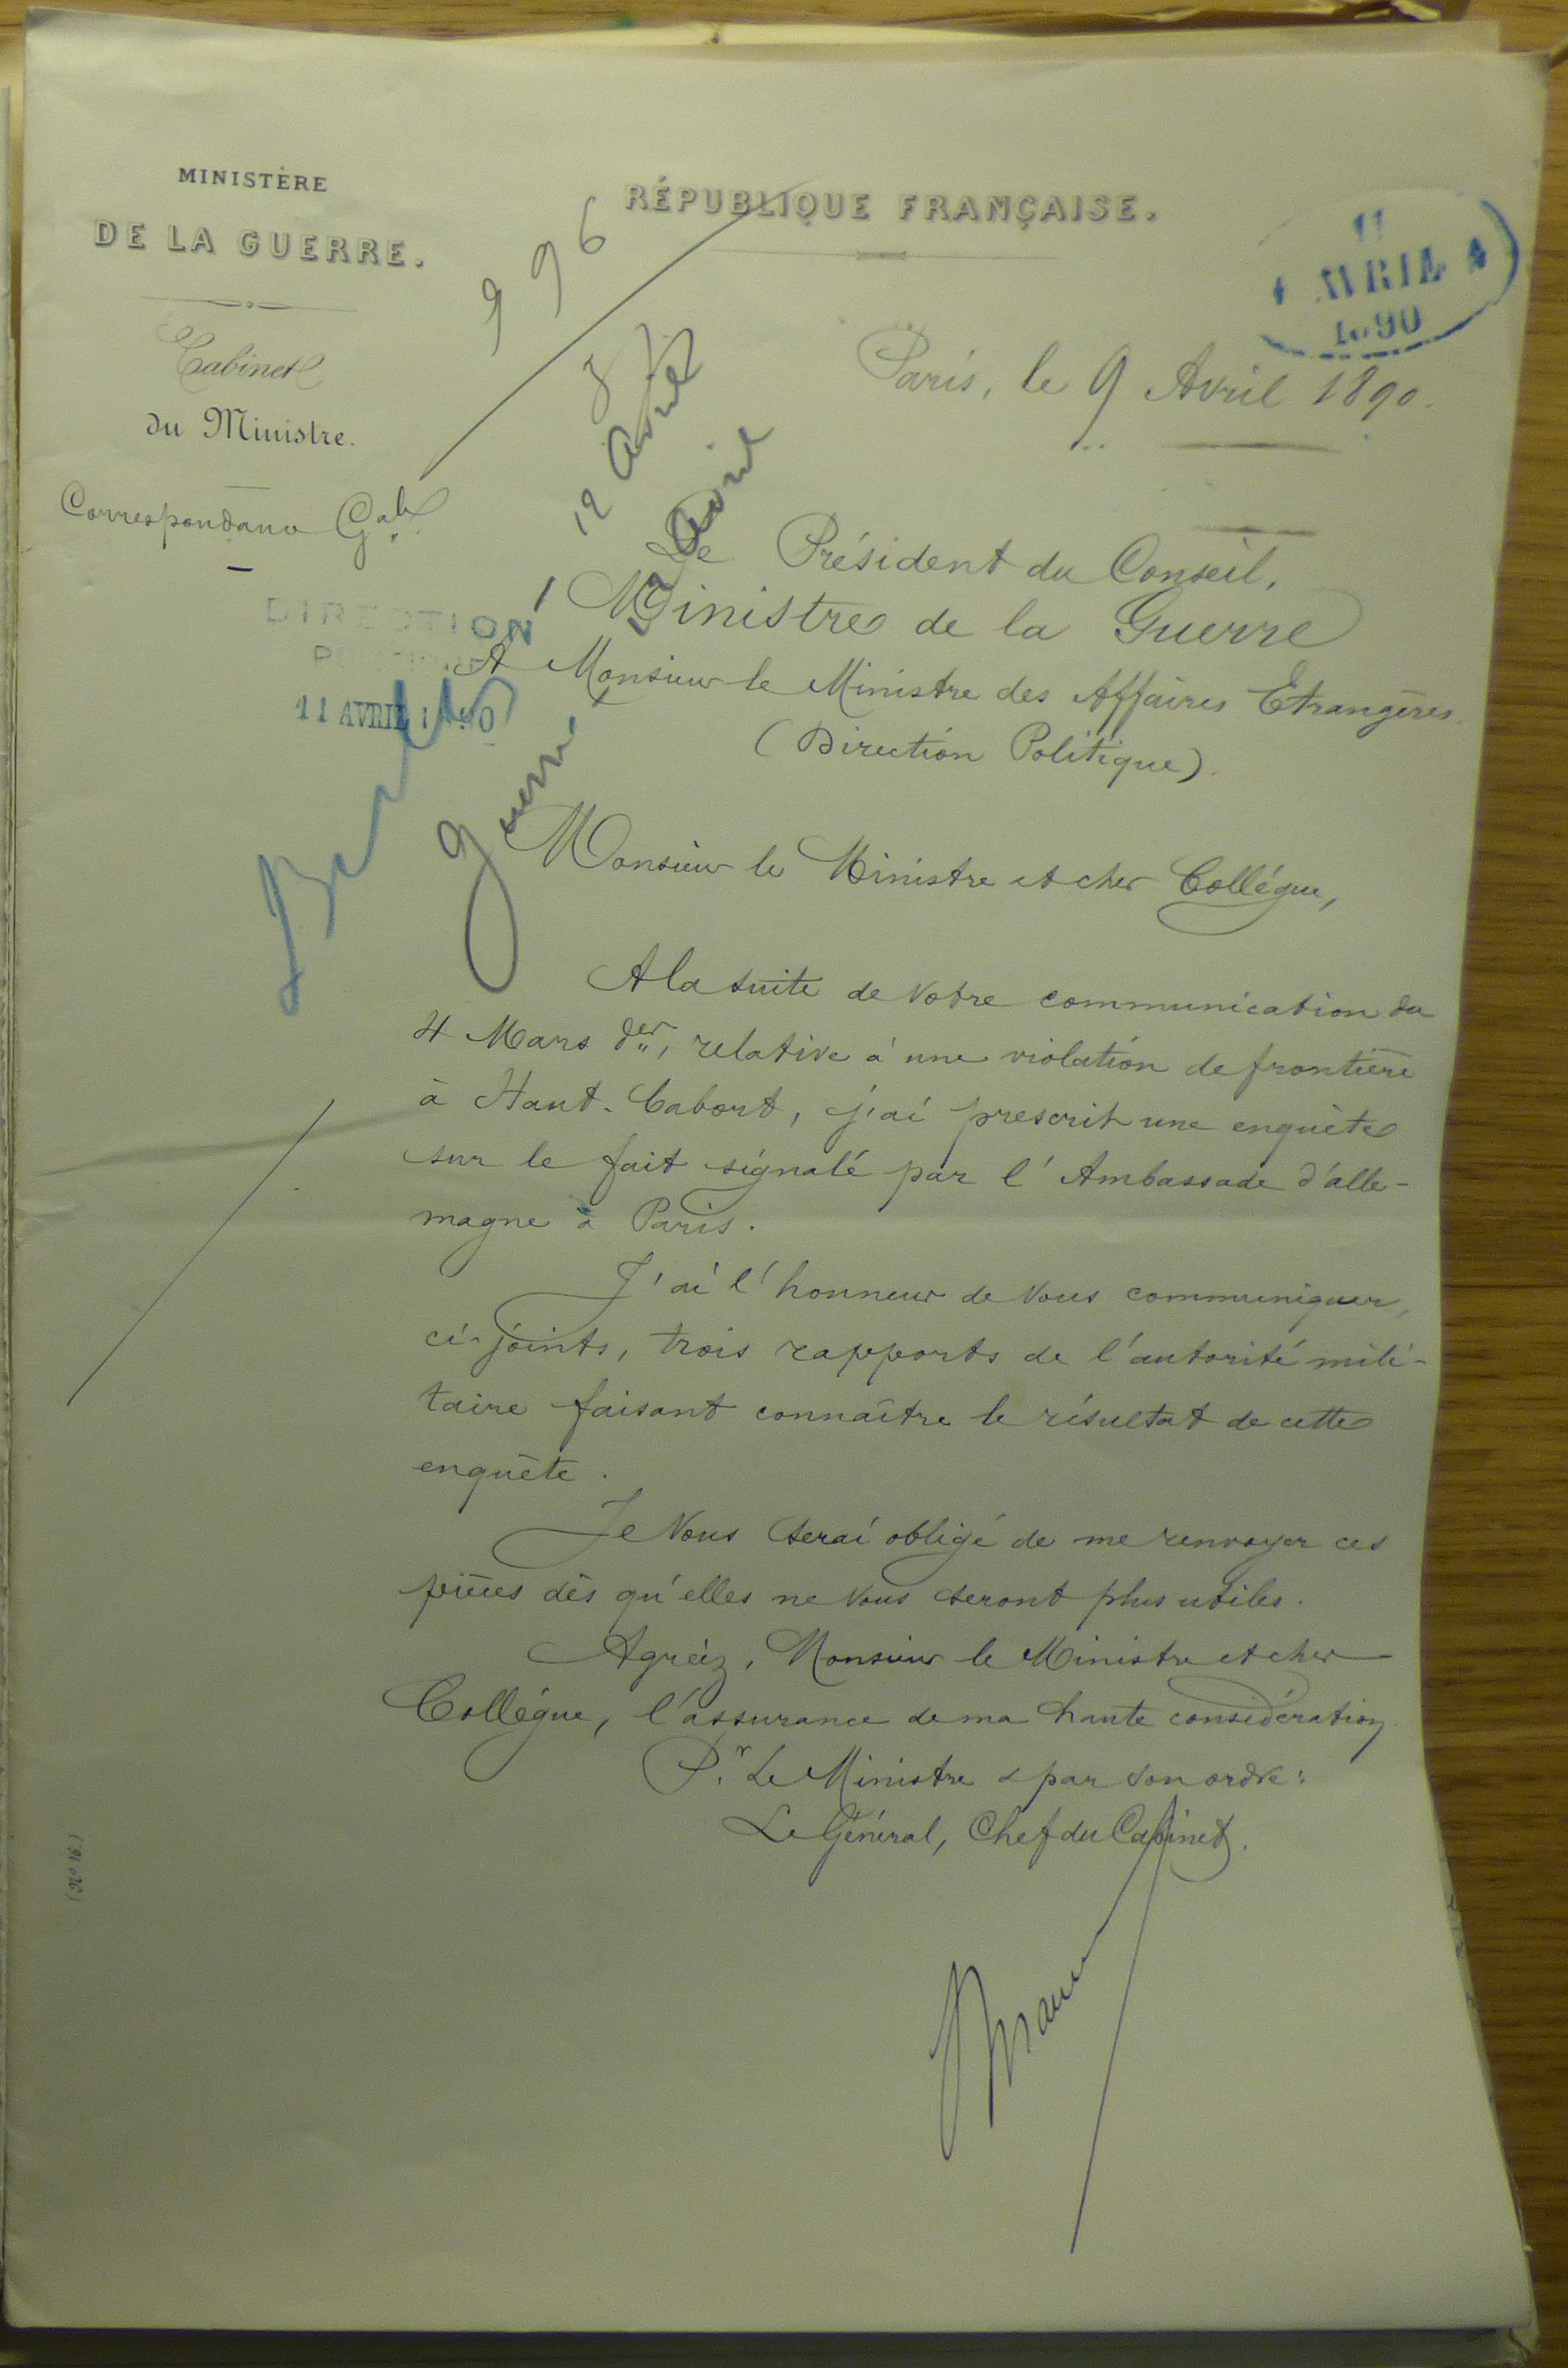 MINISTÈRE
DE LA GUERRE.
Cabinet
du Ministre.
Correspondance Gale
RÉPUBLIQUE FRANÇAISE.
996
11
AVRIL
1890
Paris, le 9 Avril 1890.
12 Avril
Avril
Guerre
DIRECTION
11 AVRIL 1890
Le Président du Conseil,
Ministre de la Guerre
A Monsieur le Ministre des Affaires Etrangères
(Direction Politique).
Monsieur le Ministre et cher Collégue,
A la suite de votre communication du
4 Mars der, relative à une violation de frontière
à Haut-Cabort, j'ai prescrit une enquête
sur le fait signalé par l'Ambassade d'alle-
magne à Paris.
J'ai l'honneur de vous communiquer,
ci-joints, trois rapports de l'autorité mili-
taire faisant connaître le résultat de cette
enquête.
Je vous serai obligé de me renvoyer ces
pièces dès qu'elles ne vous seront plus utiles.
Agréez, Monsieur le Ministre et cher
Collégue, l'assurance de ma haute considération.
Pr. Le Ministre & par son ordre:
Le Général, Chef du Cabinet.